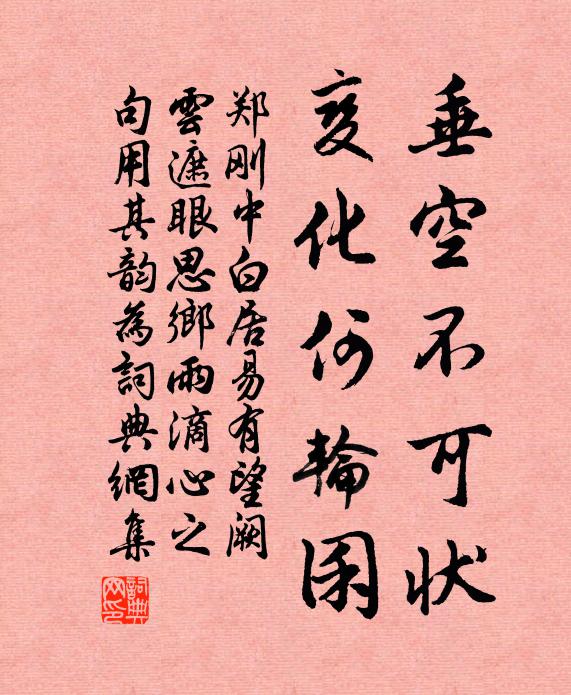 垂空不可状
变化何輪囷
郑刚中白居易有望阙
雲遮眼思鄉雨滴心之
句用其韵為詞典網集
詞典網印